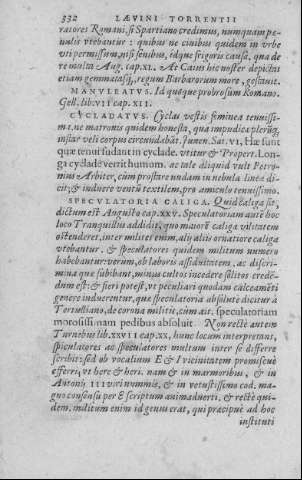 332 LÆVINI TORRENTII
ratores Romani, si Spartiano credimus, numquam pœ-
nulis vtebantur: quibus ne ciuibus quidem in vrbe
vti permissum, nisi senibus, idque frigoris causa, qua de
re multa Aug. cap. XL. At Caius hic noster depictas
etiam gemmatasq́, regum Barbarorum more, gestauit.
MANVLEATVS. Id quoque probrosum Romano.
Gell. lib. VII cap. XII.
CYCLADATVS. Cyclas vestis feminea tenuissi-
ma, ne matronis quidem honesta, qua impudicæ plerũq́,
instar veli corpus circuindabāt. Iuuen. Sat. VI, Hæ sunt
quæ tenui sudant in cyclade. vtitur & Propert. Lon-
ga cyclade verrit humom. ac tale aliquid vult Petro-
nius Arbiter, cùm prostare nudam in nebula linea di-
cit; & induere ventū textilem, pro amiculo tenuissimo.
SPECVLATORIA CALIGA. Quid caliga sit,
dictum est Augusto cap. XXV. Speculatoriam autē hoc
loco Tranquillus addidit, quò maiorē caligæ vilitatem
ostenderet. inter milites enim, alij alijs ornatiore caliga
vtebantur. & speculatores quidem militum numero
habebantur: verùm, ob laboris assiduitatem, ac discri-
mina quæ subibant, minùs cultos incedere solitos credē-
dum est: & fieri potest, vt peculiari quodam calceamēti
genere induerentur, quæ speculatoria absolutè dicitur à
Tertulliano, de corona militis, cùm ait, speculatoriam
morosissimam pedibus absoluit. Non rectè autem
Turnebus lib. XXVII cap. XX, hunc locum interpretans,
spiculatores ac speculatores multùm inter se differre
scribit: sed ob vocalium E & I vicinitatem promiscuè
efferri, vt here & heri. nam & in marmoribus, & in
Antonij III viri nummis, & in vetustissimo cod. ma-
gno consensu per E scriptum animaduerti. & rectè qui-
dem. militum enim id genus erat, qui præcipuè ad hoc
instituti